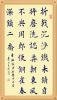 折戟沉沙鐵未銷自
將磨洗認前朝東風
不與周郎便銅雀春
深鎖二喬